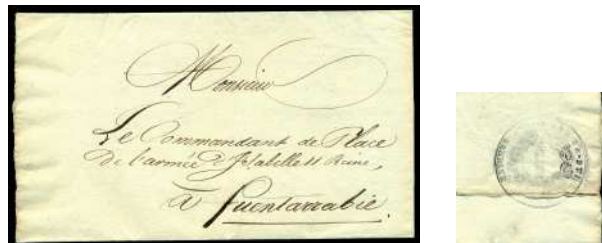 Monsieur
Le Commandant de Place
De l'armée d'Isabelle II Reine,
à Fuentarrabie.